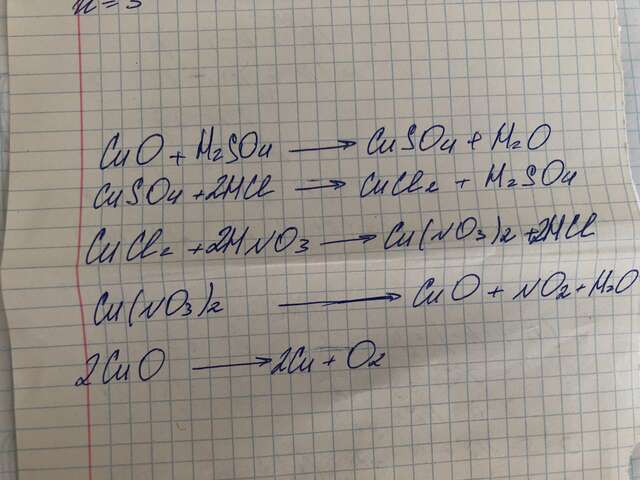 n = 3
CuO + H₂SO₄ → CuSO₄ + H₂O
CuSO₄ + 2HCl → CuCl₂ + H₂SO₄
CuCl₂ + 2HNO₃ → Cu(NO₃)₂ + 2HCl
Cu(NO₃)₂ → CuO + NO₂ + H₂O
2CuO → 2Cu + O₂